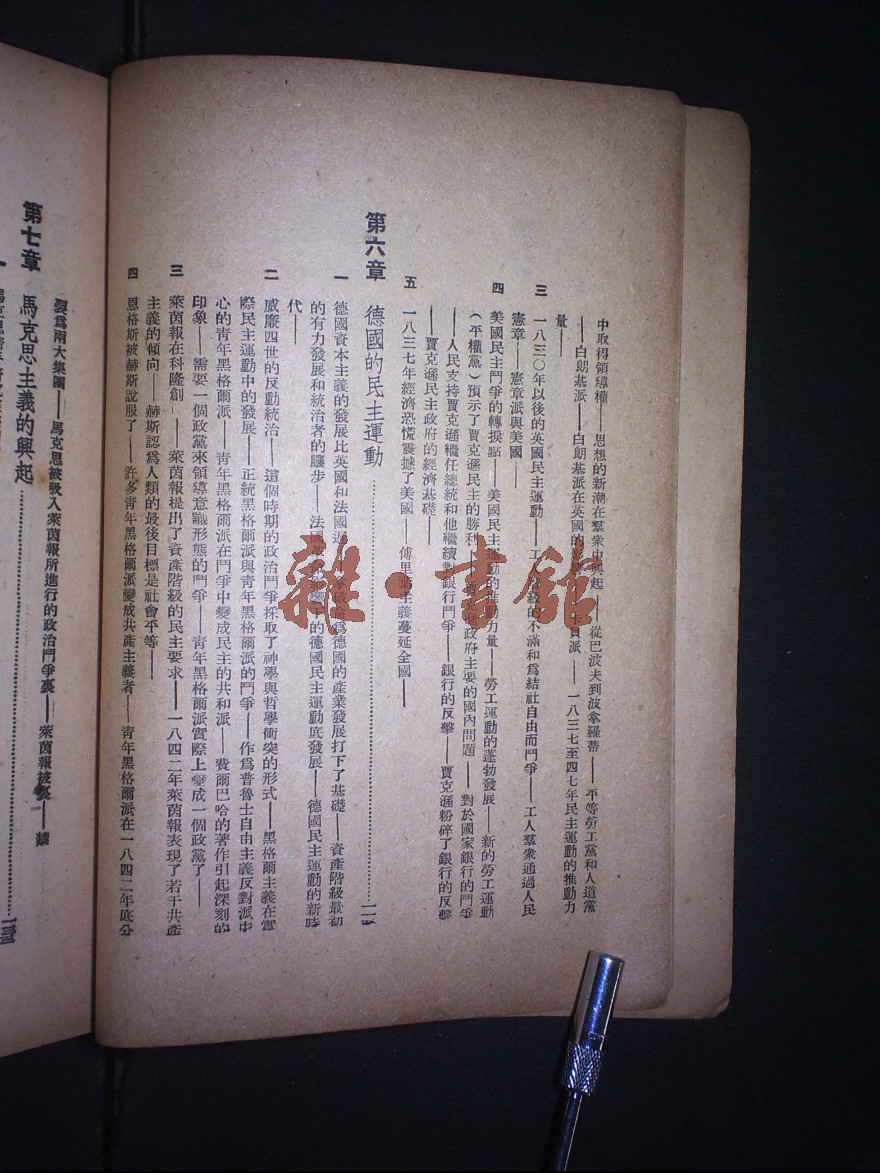 中取得領導權——思想的新潮在羣衆中興起——從巴波夫到波拿羅蒂——平等勞工黨和人道黨
——白朗基派——白朗基派在英國的 派——一八三七至四七年民主運動的推動力
量——
三 一八三〇年以後的英國民主運動——工人階級的不滿和爲結社自由而鬥爭——工人羣衆通過人民
憲章——憲章派與美國——
四 美國民主鬥爭的轉捩點——美國民主運動的推動力量——勞工運動的蓬勃發展——新的勞工運動
(平權黨)預示了賈克遜民主的勝利—— 政府主要的國內問題——對於國家銀行的鬥爭
——人民支持賈克遜繼任總統和他繼續對銀行鬥爭——銀行的反擊——賈克遜粉碎了銀行的反擊
——賈克遜民主政府的經濟基礎——
五 一八三七年經濟恐慌震撼了美國——傅里 主義蔓延全國——
第六章 德國的民主運動
一 德國資本主義的發展比英國和法國 ——拿破侖爲德國的產業發展打下了基礎——資產階級最初
的有力發展和統治者的讓步——法國革命影響下的德國民主運動底發展——德國民主運動的新時
代——
二 威廉四世的反動統治——這個時期的政治鬥爭採取了神學與哲學衝突的形式——黑格爾主義在實
際民主運動中的發展——正統黑格爾派與青年黑格爾派的鬥爭——作爲普魯士自由主義反對派中
心的青年黑格爾派——青年黑格爾派在鬥爭中變成民主的共和派——費爾巴哈的著作引起深刻的
印象——需要一個政黨來領導意識形態的鬥爭——青年黑格爾派實際上變成一個政黨了——
三 萊茵報在科隆創 ——萊茵報提出了資產階級的民主要求——一八四二年萊茵報表現了若干共產
主義的傾向——赫斯認爲人類的最後目標是社會平等——
四 恩格斯被赫斯說服了——許多青年黑格爾派變成共產主義者——青年黑格爾派在一八四二年底分
裂爲兩大集團——馬克思被吸入萊茵報所進行的政治鬥爭裏——萊茵報被
第七章 馬克思主義的興起
一
雜·書館